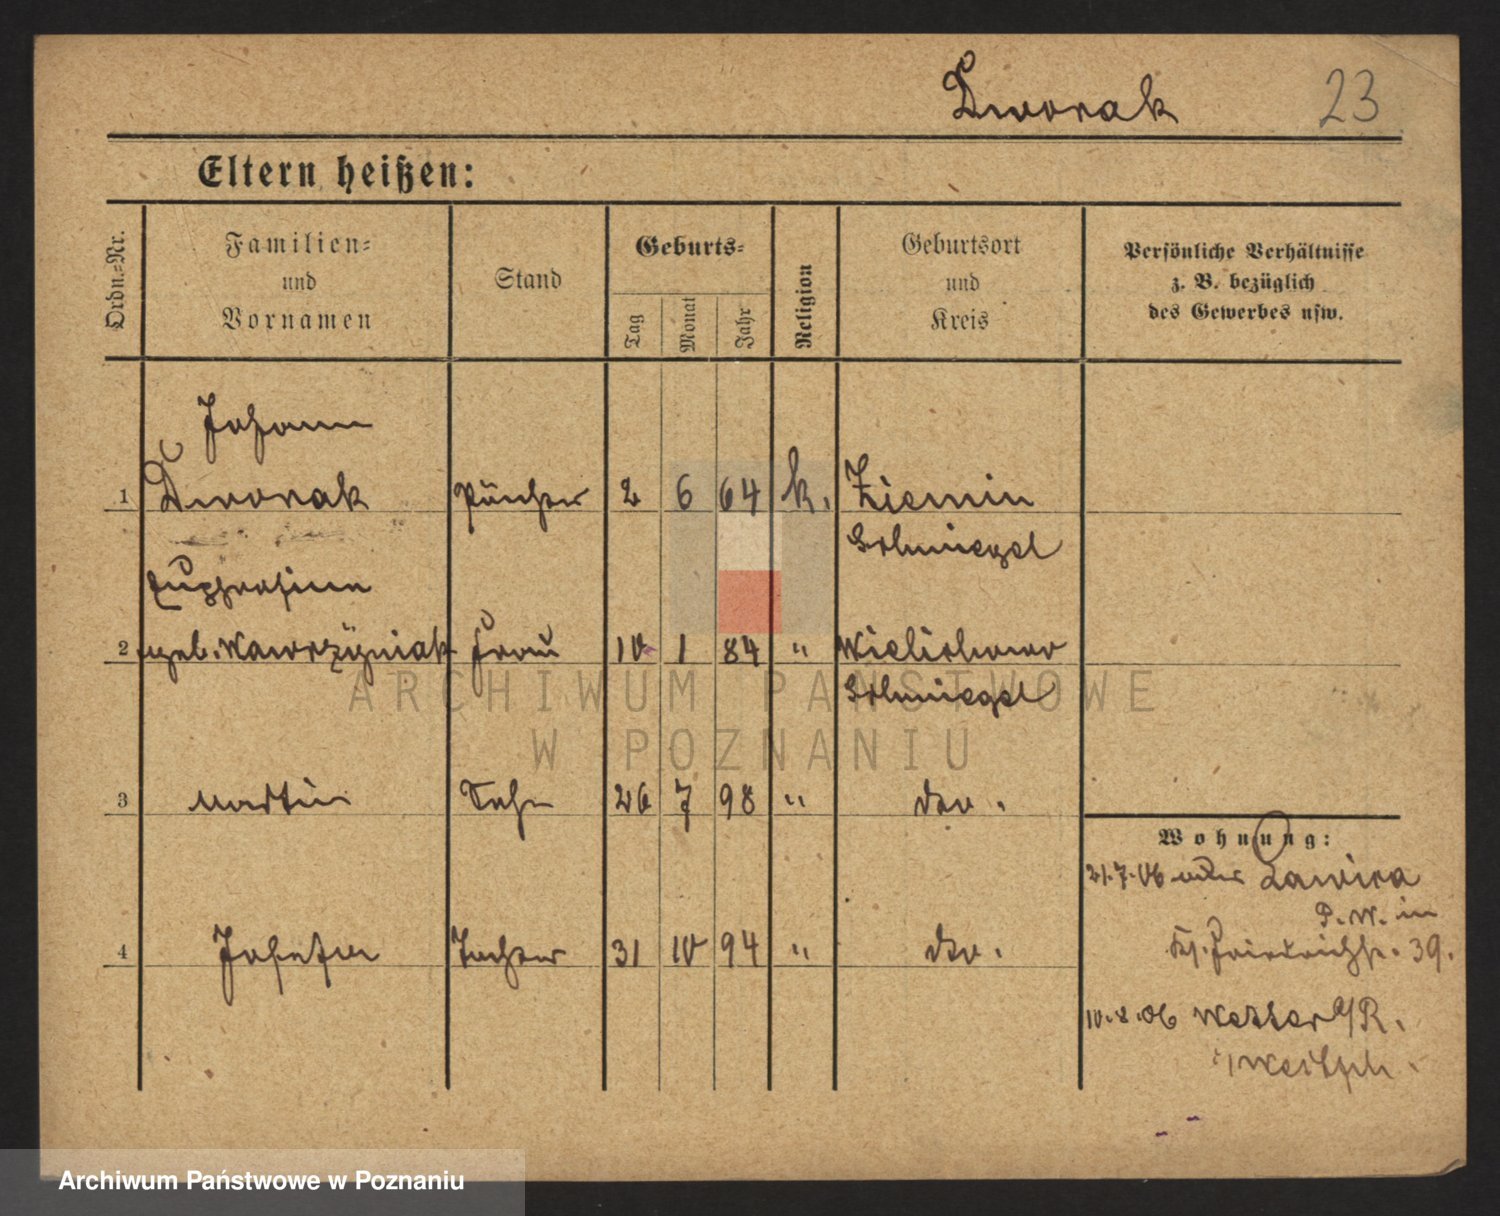 Dworak 23
Eltern heißen:
Ordn.-Nr.
Familien-
und
Vornamen
Stand
Geburts-
Tag
Monat
Jahr
Religion
Geburtsort
und
Kreis
Persönliche Verhältnisse
z. B. bezüglich
des Gewerbes usw.
Johann
1 Dworak Pächter 2 6 64 k. Ziemin
Schmiegel
Euphrosine
2 geb. Wawrzyniak Frau 10 1 84 " Wielichowo
Schmiegel
3 Martin Sohn 26 7 98 " dto.
Wohnung:
21.7.06 Lawica
P. W. in
4 Josefa Tochter 31 10 94 " dto.
Friedrichstr. 39.
10.8.06 Wetter a/R.
i/Westph.
ARCHIWUM PAŃSTWOWE
W POZNANIU
Archiwum Państwowe w Poznaniu